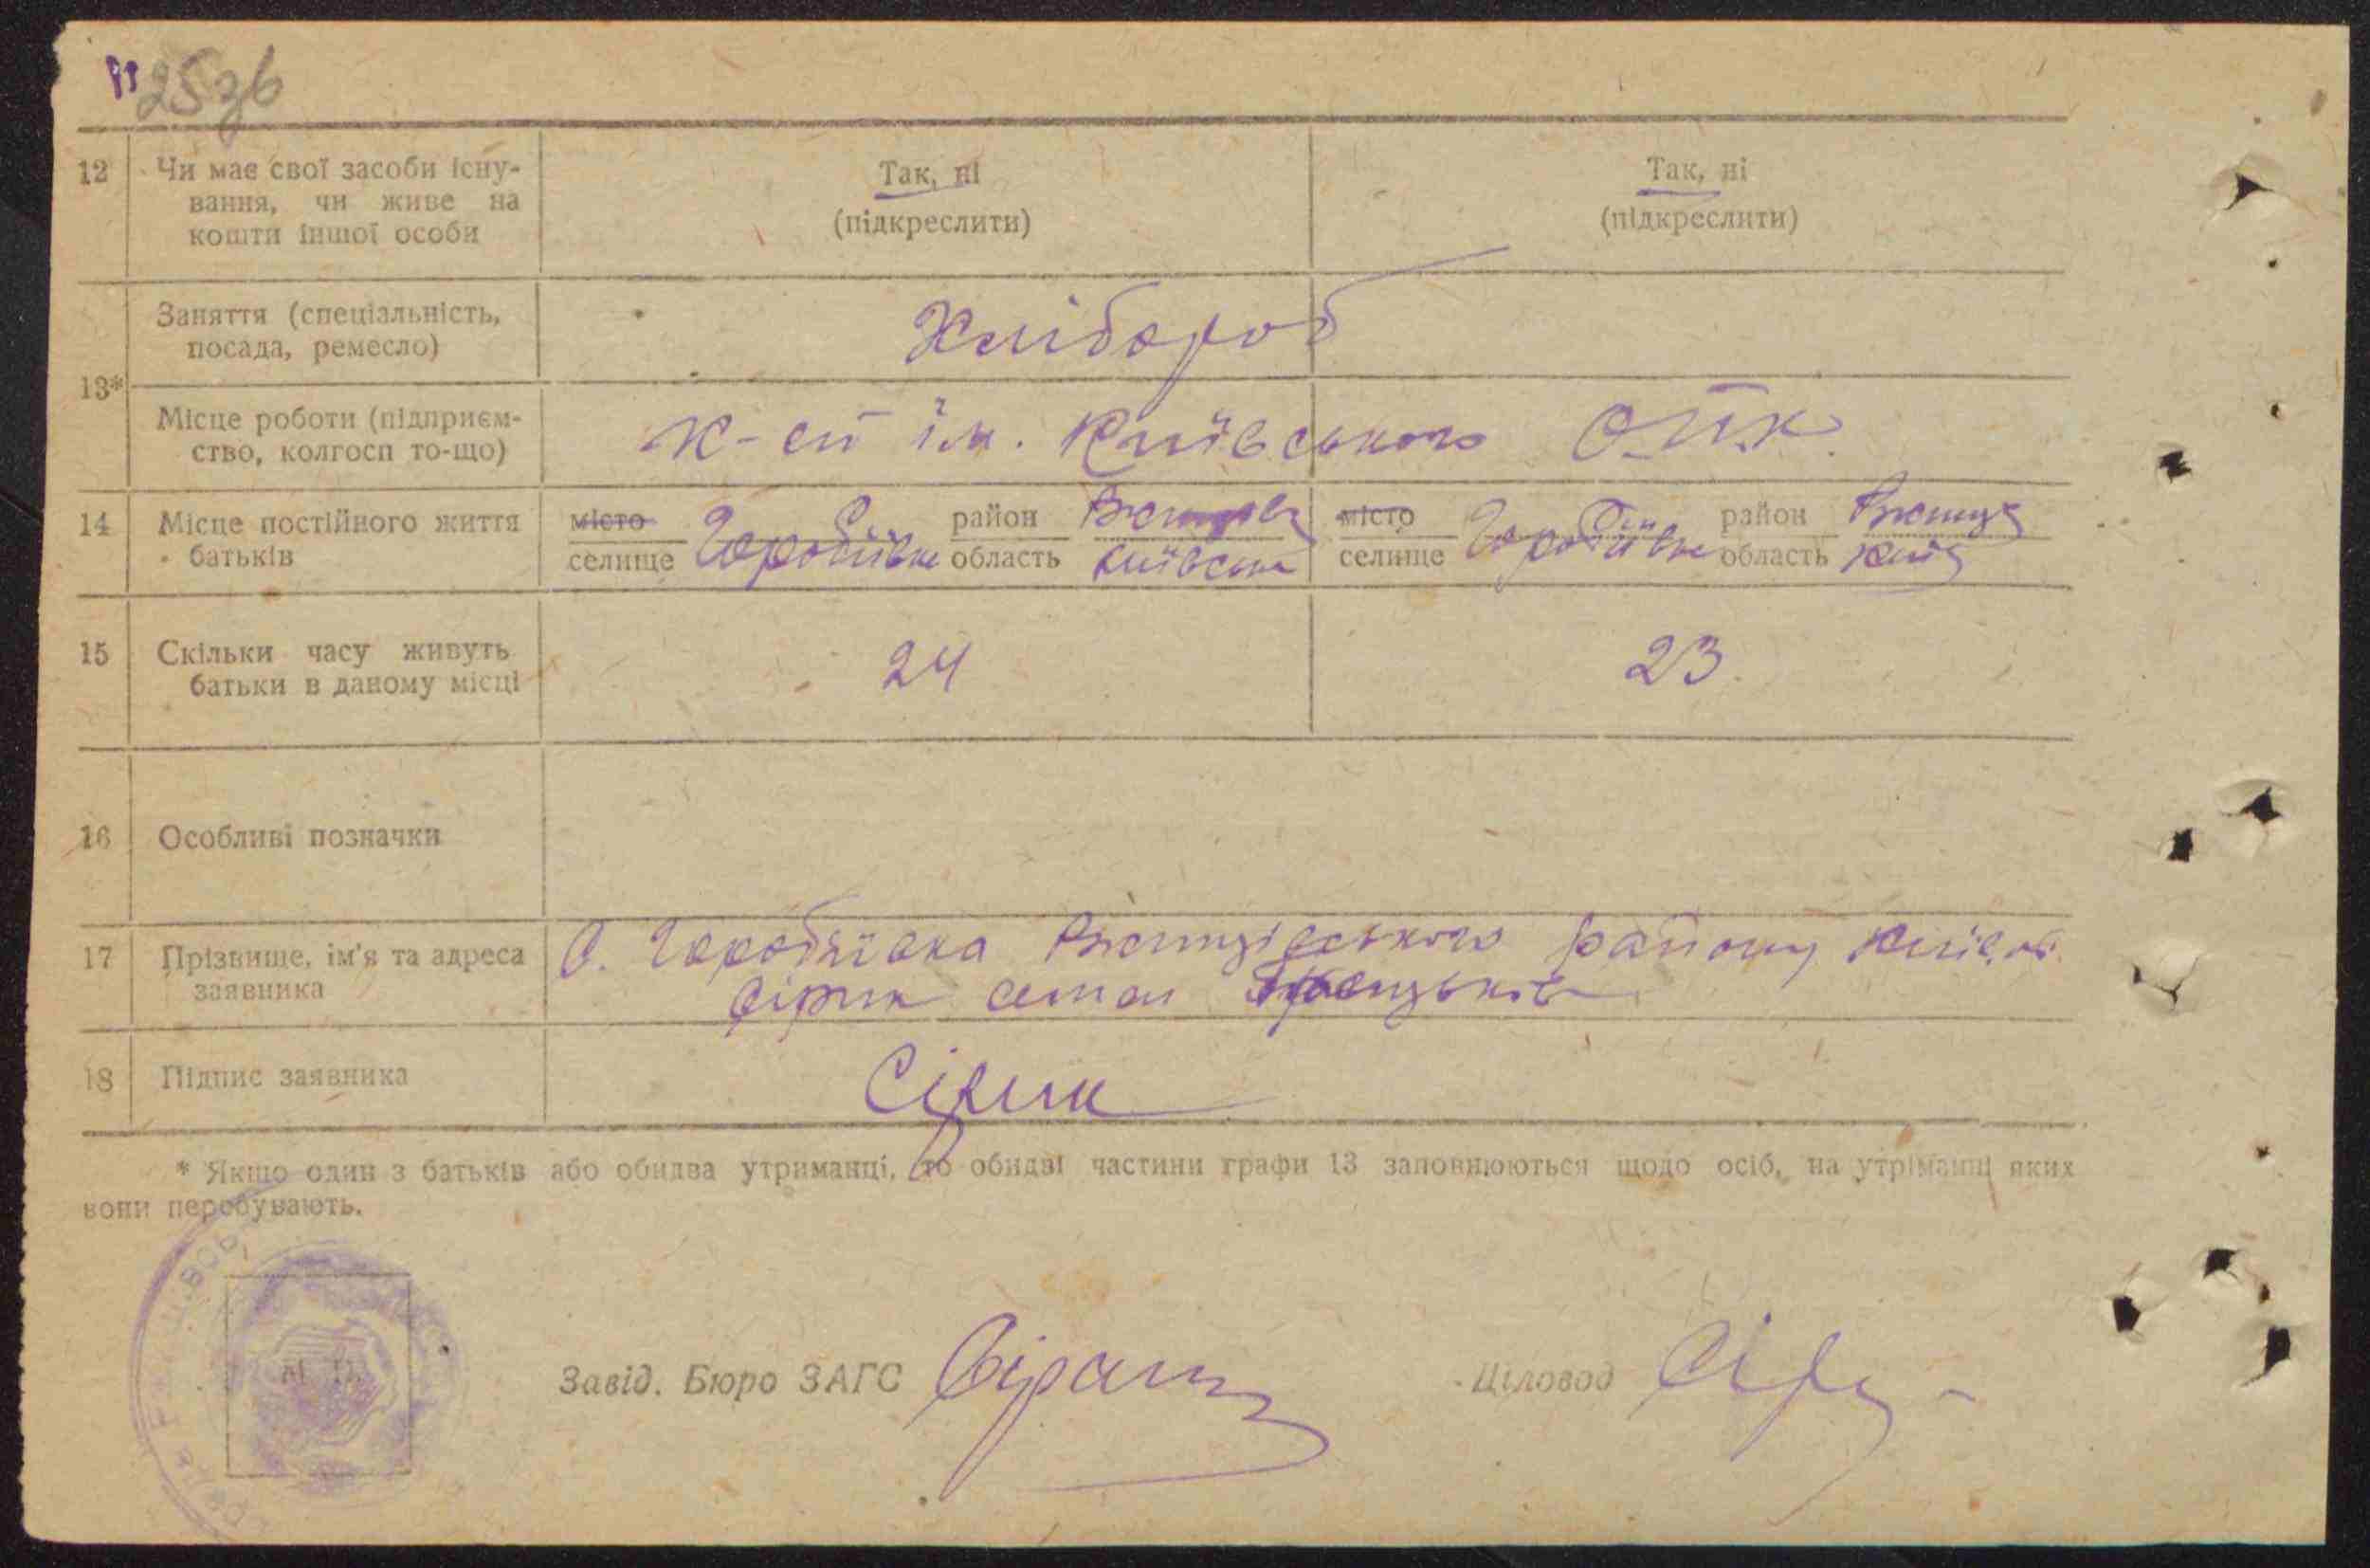 25зв
12 Чи має свої засоби існу-
вання, чи живе на
кошти іншої особи
Так, ні
(підкреслити)
Так, ні
(підкреслити)
13*
Заняття (спеціальність,
посада, ремесло)
Хлібороб
Місце роботи (підприєм-
ство, колгосп то-що)
К-сп ім. Київського О.П.К.
14 Місце постійного життя
батьків
місто
селище Горобіївка район
область Київська
місто
селище Горобіївка район
область Київ
15 Скільки часу живуть
батьки в даному місці
24
23
16 Особливі позначки
17 Прізвище, ім'я та адреса
заявника
С. Горобіївка району Київ. об.
Сірик
18 Підпис заявника
Сірик
* Якщо один з батьків або обидва утриманці, то обидві частини графи 13 заповнюються щодо осіб, на утріманні яких
вони перебувають.
М П.
Завід. Бюро ЗАГС
Діловод